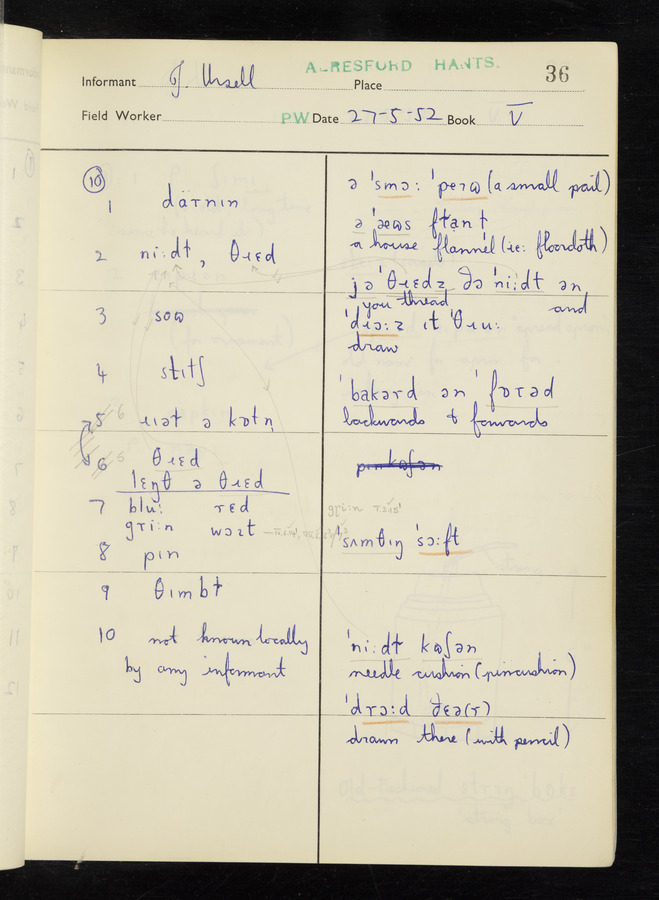 ALRESFORD HANTS. 36
Informant J. Ursell Place
Field Worker PW Date 27-5-52 Book V
10
1 däɾnɪn
2 niːdɫ, θɹɛd
3 soω
4 stɪtʃ
5 6 ɹɪəɫ ə kɒtn̩
6 5 θɹɛd
lɛŋθ ə θɹɛd
7 bluː rɛd
griːn wɔɪt
8 pɪn
9 θɪmbɫ
10 not known locally
by any informant
ə ˈsmɔː ˈpeɪω (a small pail)
ə ˈæωs flanɫ
a house flannel (ie: floorcloth)
jə ˈθɹɛdz ðə ˈniːdɫ ən
you thread and
ˈdɹɔːz ɪt ˈθɹuː
draw
ˈbakəɾd ən ˈfɒɾəd
backwards & forwards
pɪnkωʃən
griːn
ˈsʌmθɪŋ ˈsɔːft
ˈniːdɫ kωʃən
needle cushion (pincushion)
ˈdrɔːd ðɛə(r)
drawn there (with pencil)